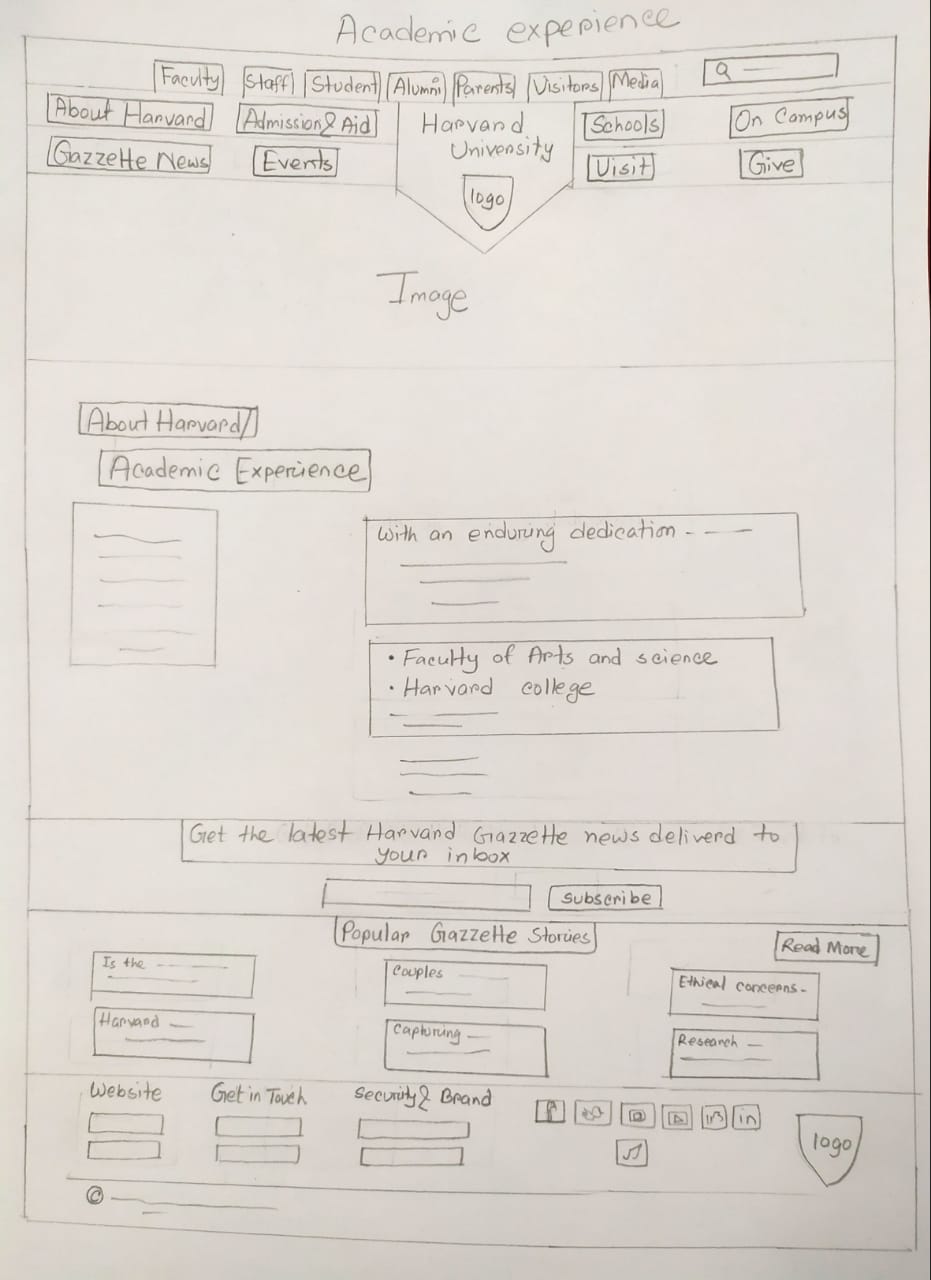 Academic experience
Faculty Staff Student Alumni Parents Visitors Media
About Harvard Admission & Aid Harvard University Schools On Campus
Gazzette News Events Visit Give
logo
Image
About Harvard/
Academic Experience
With an enduring dedication - - —
• Faculty of Arts and science
• Harvard college
Get the latest Harvard Gazzette news deliverd to
your inbox
Subscribe
Popular Gazzette Stories
Read More
Is the
Couples
Ethical concerns -
Harvard
Capturing
Research
Website Get in Touch Security & Brand
in
logo
©